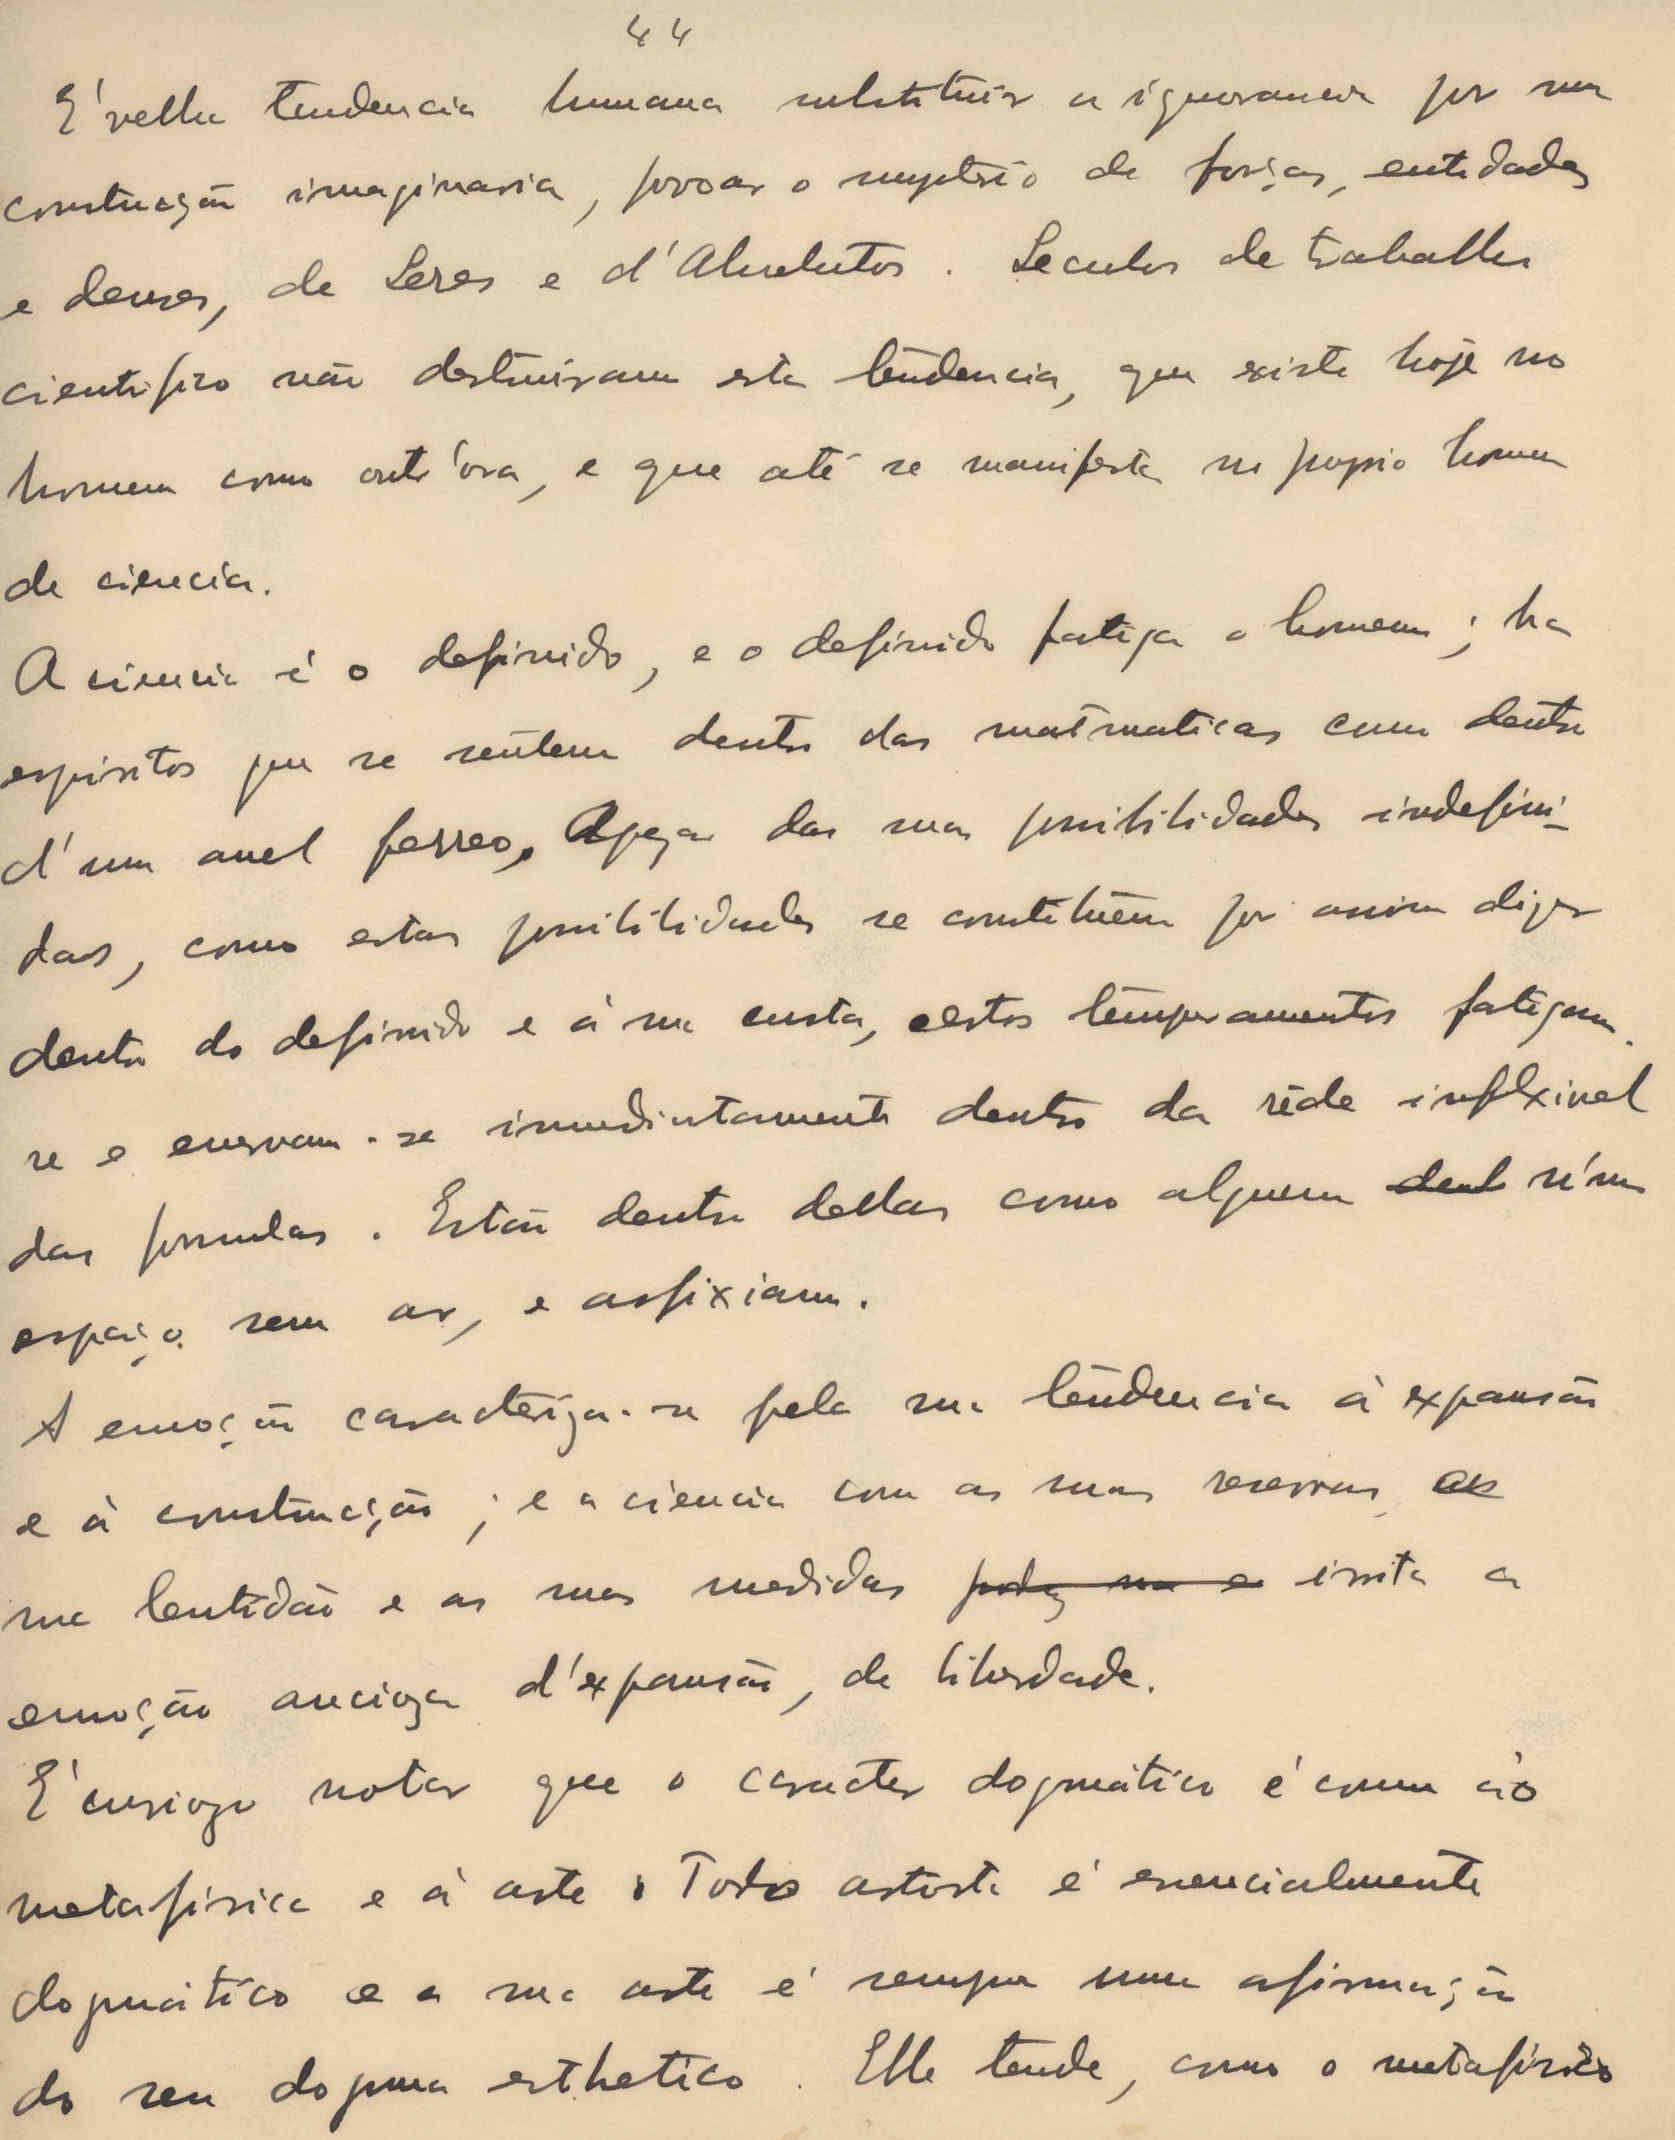 44
E' velha tendencia humana substituir a ignorancia por uma
construcção imaginaria, povoar o mysterio de forças, entidades
e deuses, de Seres e d'Absolutos. Seculos de trabalho
cientifico não destruiram esta tendencia, que existe hoje no
homem como outr'ora, e que até se manifesta no proprio homem
de ciencia.
A ciencia é o definido, e o definido fatiga o homem; ha
espiritos que se sentem dentro das matematicas como dentro
d'um anel ferreo. Apezar das suas possibilidades indefini-
das, como estas possibilidades se constituem por assim dizer
dentro do definido e á sua custa, certos temperamentos fatigam-
se e enervam-se immediatamente dentro da rêde inflexivel
das formulas. Estão dentro dellas como alguem dent n'um
espaço sem ar, e asfixiam.
A emoção caracteriza-se pela sua tendencia á expansão
e á construcção; e a ciencia com as suas reservas, as
sua lentidão e as suas medidas irrita a
emoção ancioza d'expansão, de liberdade.
E' curiozo notar que o caracter dogmático é comum ao
metafisico e á arte. Todo artista é essencialmente
dogmático e a sua arte é sempre uma afirmação
do seu dogma esthetico. Elle tende, como o metafisico